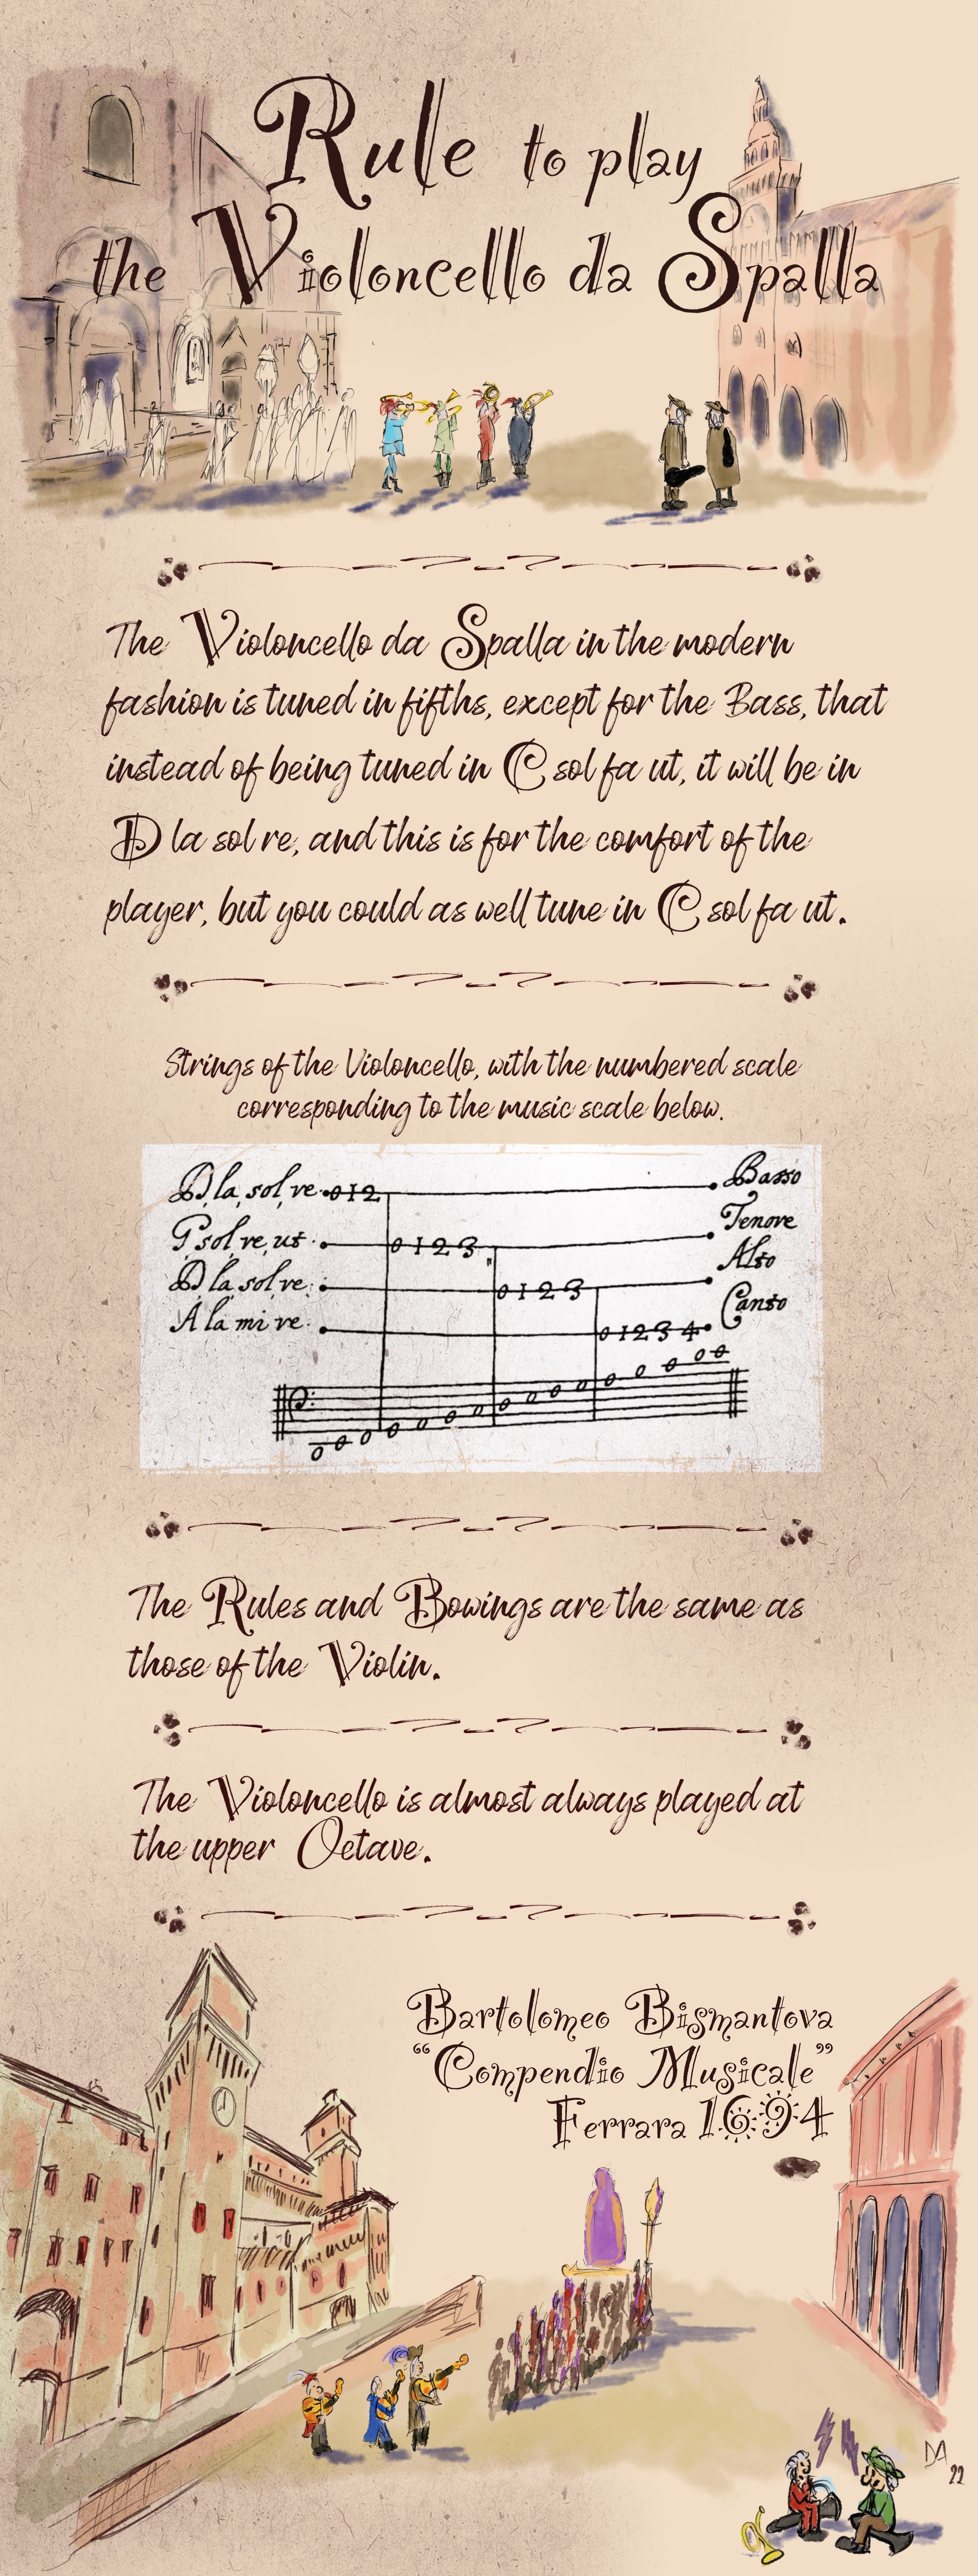 Rule to play
the Violoncello da Spalla
The Violoncello da Spalla in the modern
fashion is tuned in fifths, except for the Bass, that
instead of being tuned in C sol fa ut, it will be in
D la sol re, and this is for the comfort of the
player, but you could as well tune in C sol fa ut.
Strings of the Violoncello, with the numbered scale
corresponding to the music scale below.
D, la, sol, re. 0 1 2 Basso
G sol re, ut. 0 1 2 3 Tenore
D la, sol, re. 0 1 2 3 Alto
A la mi re. 0 1 2 3 4 Canto
The Rules and Bowings are the same as
those of the Violin.
The Violoncello is almost always played at
the upper Octave.
Bartolomeo Bismantova
“Compendio Musicale”
Ferrara 1694
DA
22